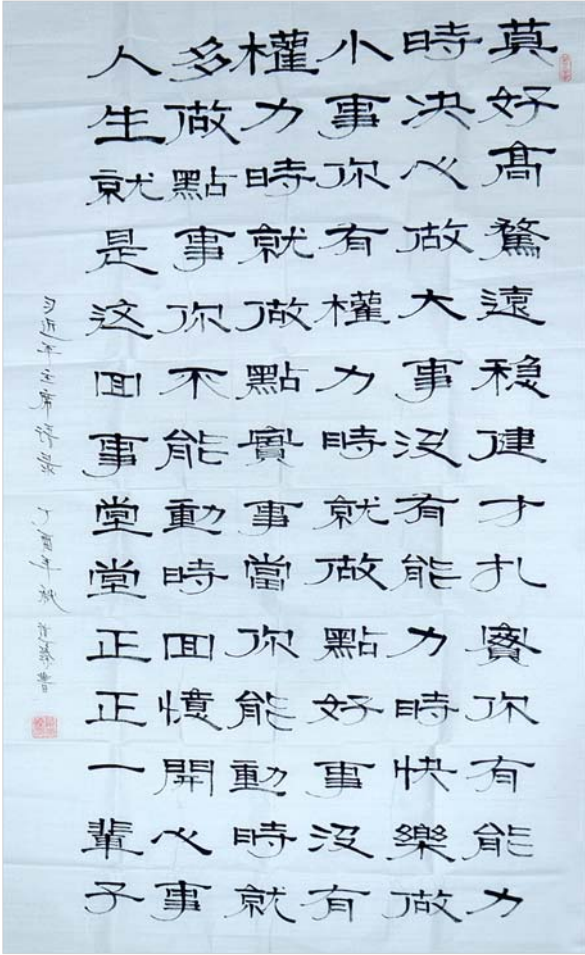 莫好髙騖遠稳健才扎實你有能力
時决心做大事没有能力時快樂做
小事你有權力時就做點好事没有
權力時就做點實事當你能動時就
多做點事你不能動時回憶開心事
人生就是这回事堂堂正正一輩子
习近平主席语录 丁酉年秋 書